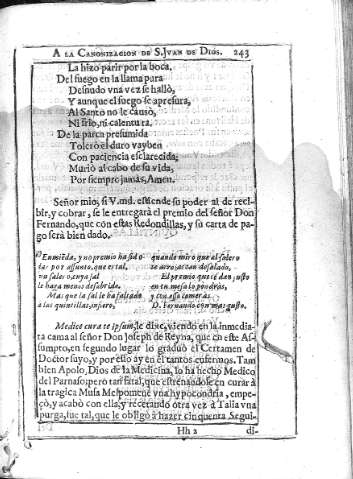 A LA CANONIZACION DE S. IVAN DE DIOS. 243
La hizo parir por la boca,
Del fuego en la llama para
Desnudo vna vez se hallò,
Y aunque el fuego se apresura,
Al Santo no le causò,
Ni frio, ni calentura.
De la parca presumida
Tolerò el duro vayben
Con paciencia esclarecida,
Muriò al cabo de su vida,
Por siempre jamàs, Amen.
Señor mio, si V.md. estiende su poder al de reci-
bir, y cobrar, se le entregarà el premio del señor Don
Fernando, que con estas Redondillas, y su carta de pa-
go serà bien dado.
y no premio ha sido
por assunto, que es tal,
no salero, cuya sal
le haga menos desabrida.
Mas que la sal le ha faltado
a las quintillas, infiero,
quando miro que al salero
El premio que te dèn, justo
en tu mesa lo pondràs,
D. Fernando con mas gusto.
Medice cura te ipsum, le dixe, viendo en la inmedia-
ta cama al señor Don Joseph de Reyna, que en este As-
sumpto, en segundo lugar lo graduò el Certamen de
Doctor suyo, y por esso ay en èl tantos enfermos. Tam
bien Apolo, Dios de la Medicina, lo ha hecho Medico
del Parnaso; pero tan fatal, que estrenandole en curar à
la tragica Musa Melpomene vna hypocondria, empe-
çò, y acabò con ella, y recetando otra vez à Talia vna
purga, fue tal, que le obligò à hazer cinquenta Segui-
Hh 2 di-